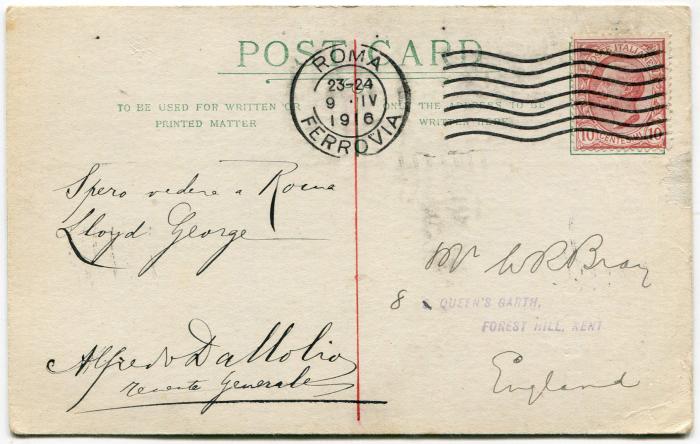 POST CARD
TO BE USED FOR WRITTEN OR
PRINTED MATTER
ONLY THE ADDRESS TO BE
WRITTEN HERE
ROMA
23-24
9 · IV
1916
FERROVIA
POSTE ITALIANE
10 CENTESIMI 10
Spero vedere a Roma
Lloyd George
Alfredo Dallolio
Generale
Mr W R Bray
8 QUEEN'S GARTH,
FOREST HILL, KENT
England